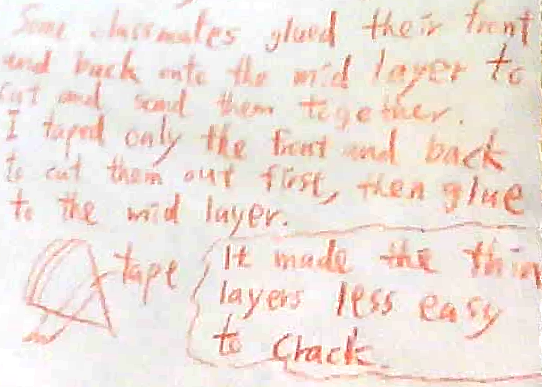 Some classmates glued their front
and back onto the mid layer to
cut and sand them together.
I taped only the front and back
to cut them out first, then glue
to the mid layer.
tape
It made the thin
layers less easy
to crack.